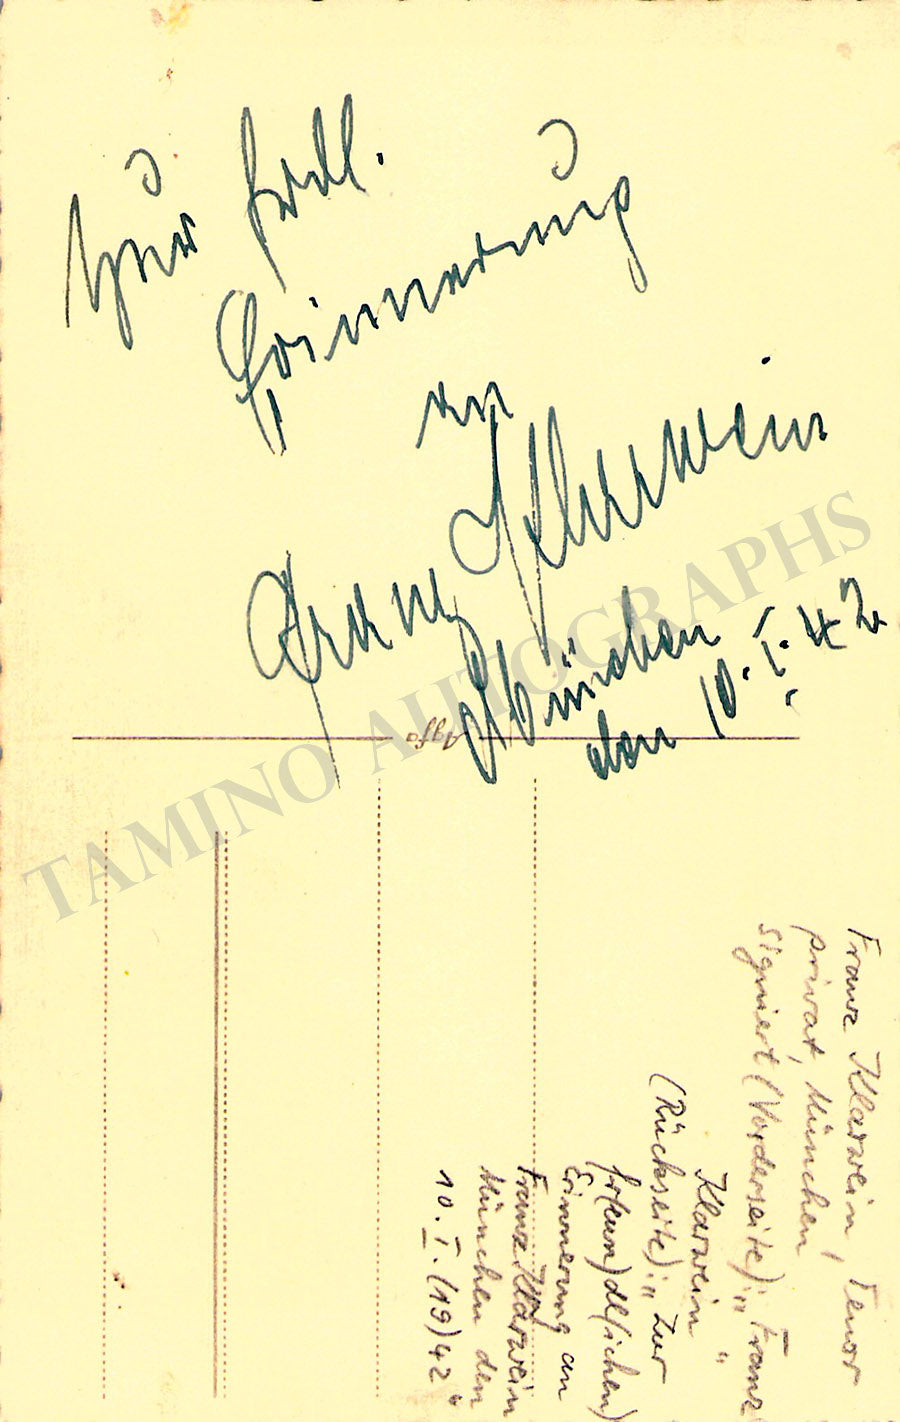 Zur frdl.
Erinnerung
an
Franz Klarwein
München
den 10. I. 42
Agfa
TAMINO AUTOGRAPHS
Franz Klarwein, Tenor
privat, München,
signiert (Vorderseite): "Franz
Klarwein"
(Rückseite): "Zur
fr(eun)dl(ichen)
Erinnerung an
Franz Klarwein
München den
10. I. (19)42"